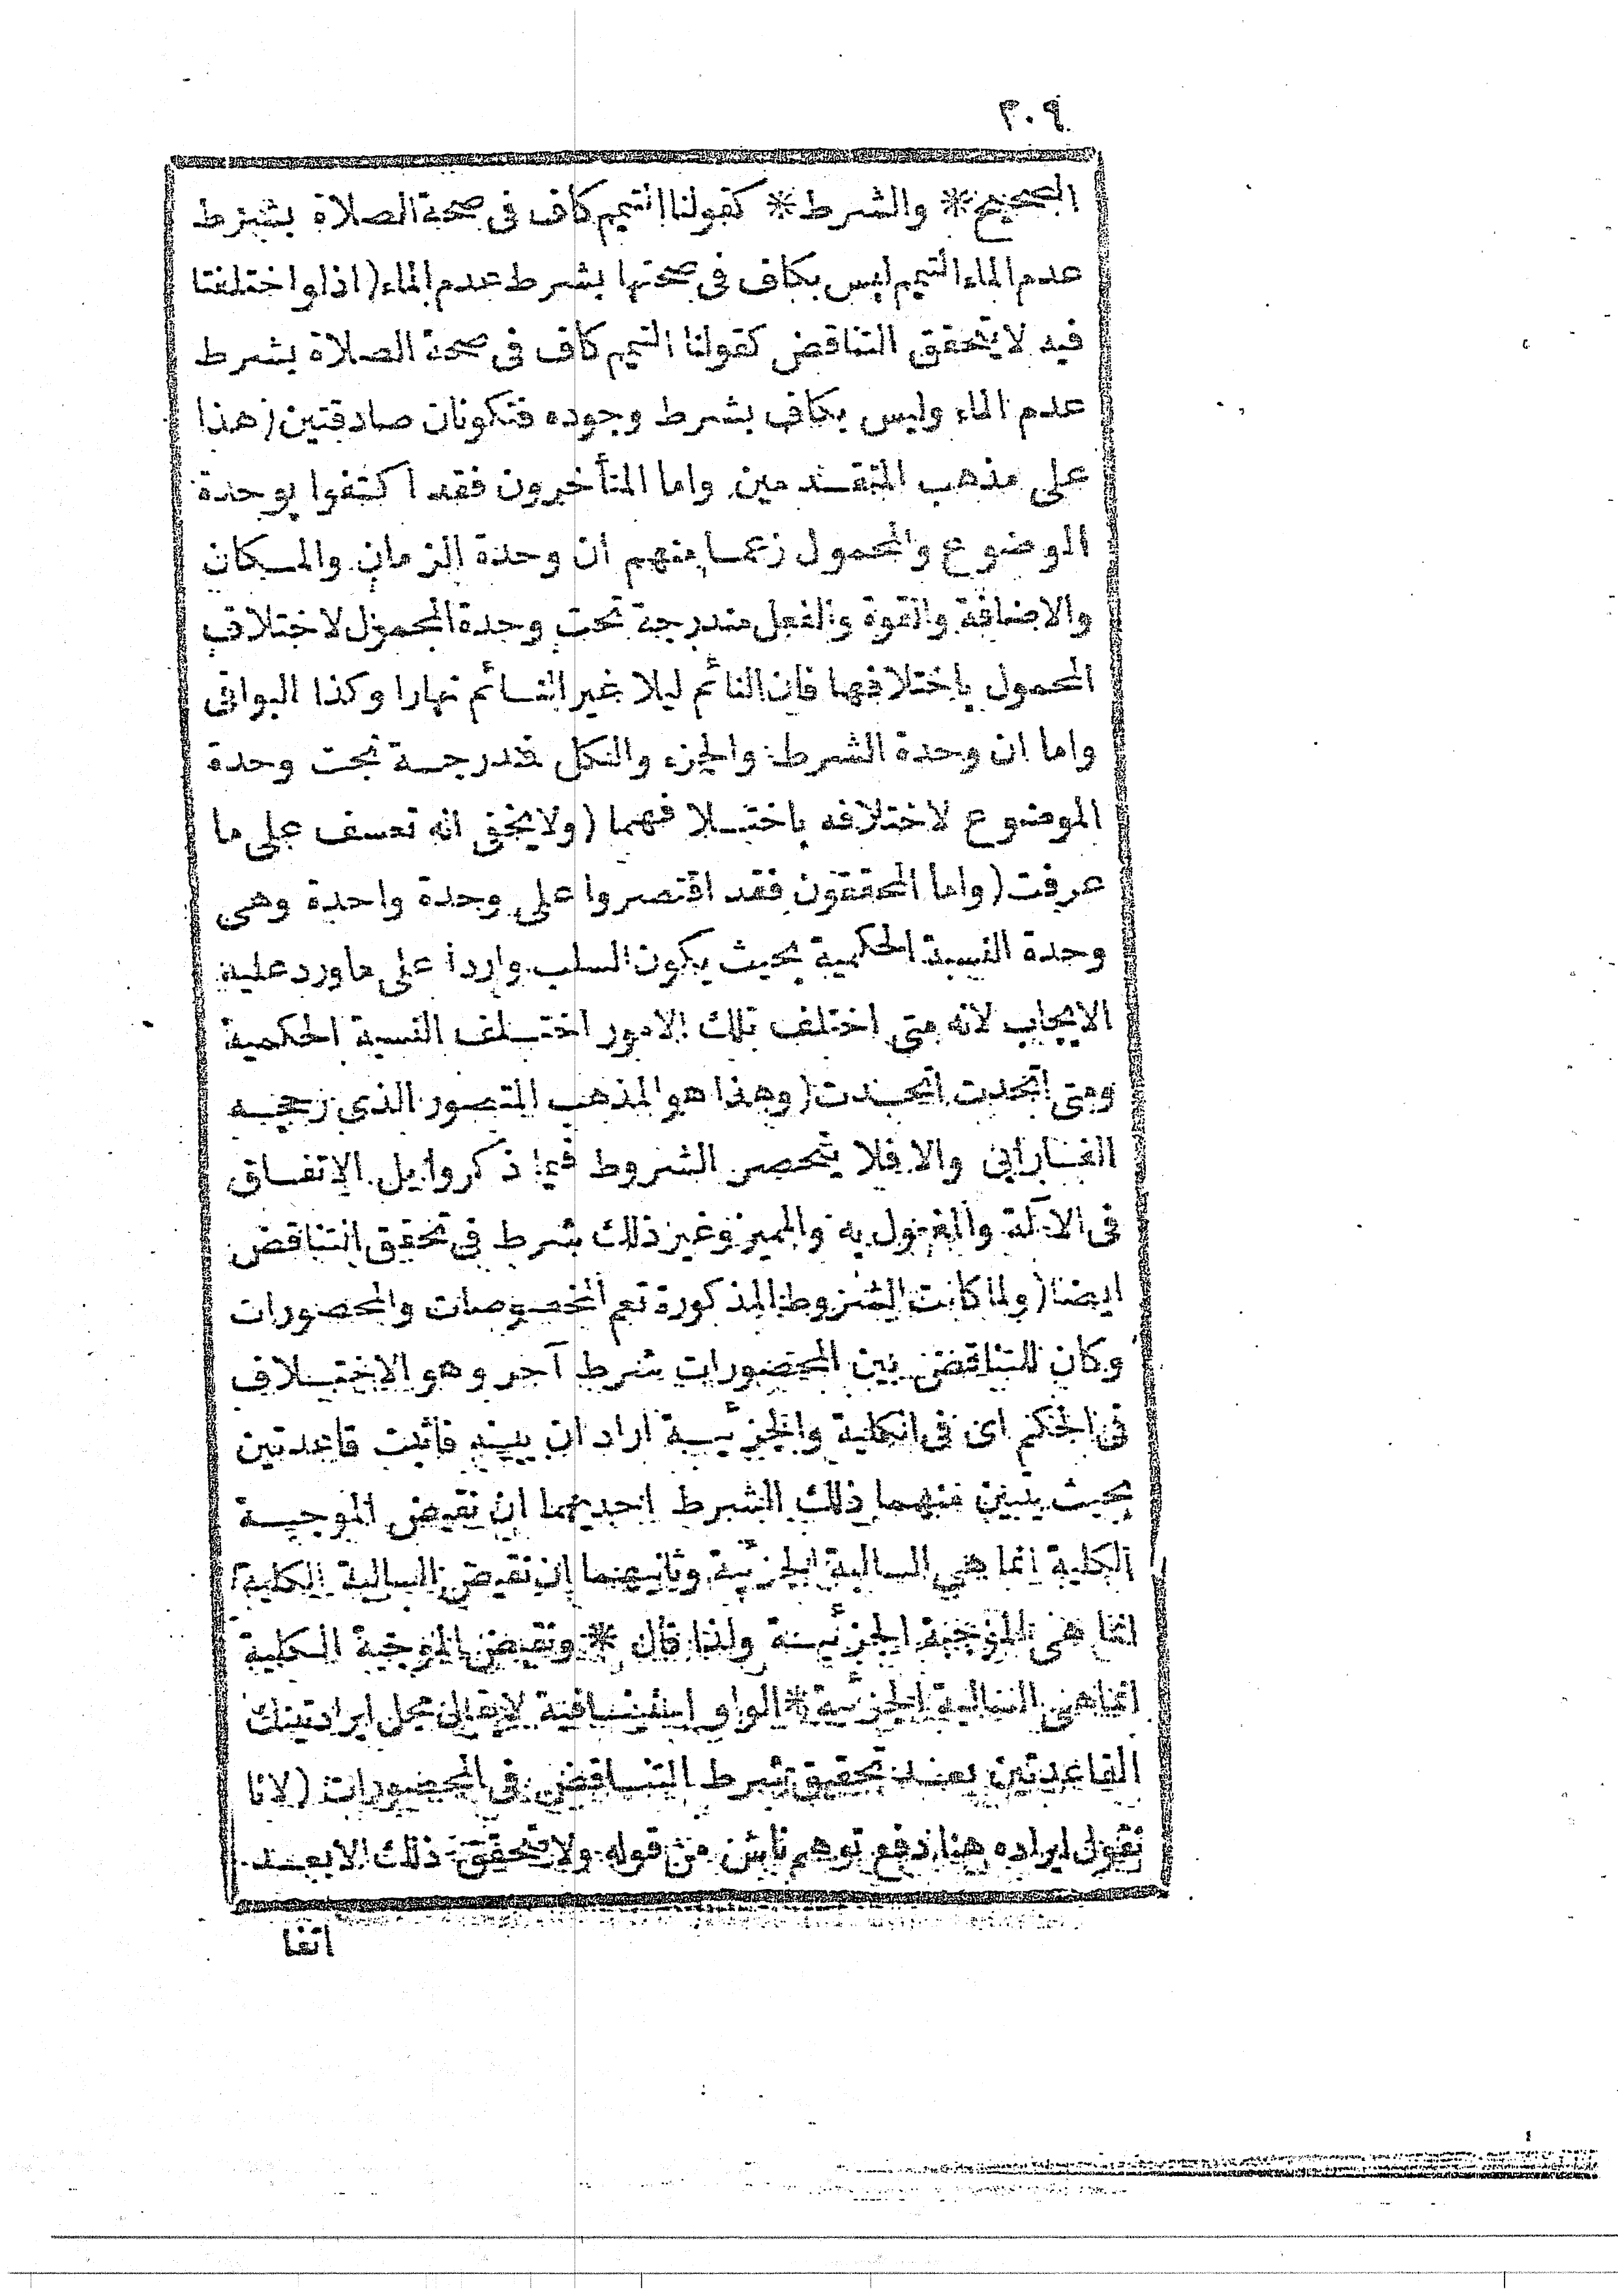 ٢٠٩
الصحيح * والشرط * كقولنا التيمم كاف فى صحة الصلاة بشرط
عدم الماء التيمم ليس بكاف فى صحتها بشرط عدم الماء ( اذ لو اختلفتا
فيه لا يتحقق التناقض كقولنا التيمم كاف فى صحة الصلاة بشرط
عدم الماء وليس بكاف بشرط وجوده فتكونان صادقتين ( هذا
على مذهب المتقدمين واما المتأخرون فقد اكتفوا بوحدة
الموضوع والمحمول زعما منهم ان وحدة الزمان والمكان
والاضافة والقوة والفعل مندرجة تحت وحدة المحمول لاختلاف
المحمول باختلافها فان النائم ليلا غير النائم نهارا وكذا البواقى
واما ان وحدة الشرط والجزء والكل فندرجة تحت وحدة
الموضوع لاختلافه باختلافهما ( ولا يخفى انه تعسف على ما
عرفت ( واما المحققون فقد اقتصروا على وحدة واحدة وهى
وحدة النسبة الحكمية بحيث يكون السلب واردا على ما ورد عليه
الايجاب لانه متى اختلف تلك الامور اختلف النسبة الحكمية
ومتى اتحدت اتحدت ( وهذا هو المذهب المنصور الذى رجحه
الفارابى والا فلا ينحصر الشروط فيما ذكروا بل الاتفاق
فى الآلة والمفعول به والمميز وغير ذلك شرط فى تحقق التناقض
ايضا ( ولما كانت الشروط المذكورة تعم المخصوصات والمحصورات
وكان للتناقض بين المحصورات شرط آخر وهو الاختلاف
فى الحكم اى فى الكلية والجزئية اراد ان يبينه فاثبت قاعدتين
بحيث يتبين منهما ذلك الشرط احديهما ان نقيض الموجبة
الكلية انما هى السالبة الجزئية وثانيهما ان نقيض السالبة الكلية
انما هى الموجبة الجزئية ولذا قال * ونقيض الموجبة الكلية
انما هى السالبة الجزئية * الواو استينافية لا يقال محل ايراد تينك
القاعدتين بعد تحقيق شرط التناقض فى المحصورات ( لانا
نقول ايراده هنا دفع توهم ناش من قوله ولا تحقق ذلك الا بعد
اتفا